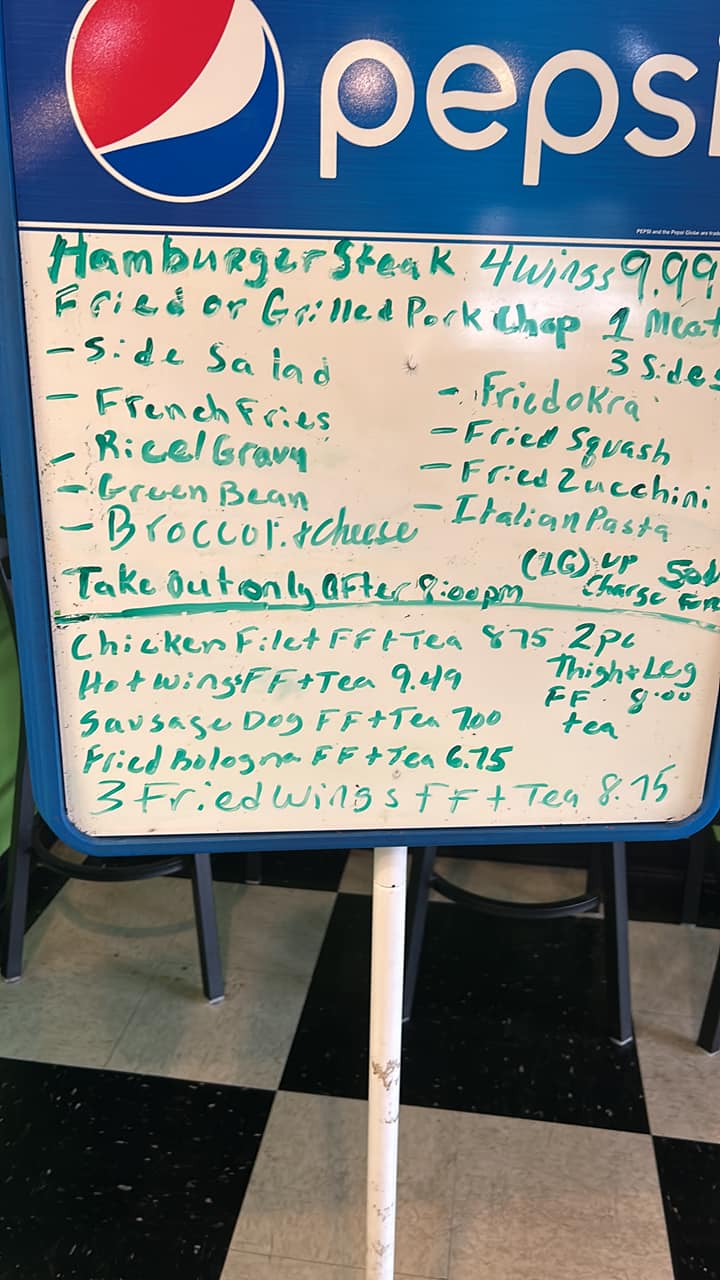 pepsi
PEPSI and the Pepsi Globe are
Hamburger Steak 4 wings 9.99
Fried or Grilled Pork Chop 1 Meat
3 Sides
- Side Salad
- French Fries
- Rice/Gravy
- Green Bean
- Broccoli + cheese
- Fried Okra
- Fried Squash
- Fried Zucchini
- Italian Pasta
(LG) UP
Charge
Take Out only After 8:00pm
Chicken Filet FF + Tea 8.75
Hot wings FF + Tea 9.49
Sausage Dog FF + Tea 7.00
Fried Bologna FF + Tea 6.75
3 Fried Wings FF + Tea 8.75
2pc
Thigh + Leg
FF 8.00
tea